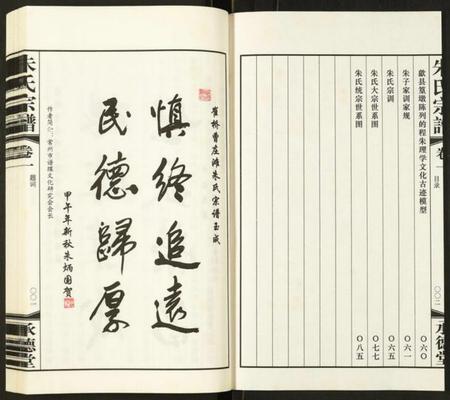 朱氏宗譜
卷一
目录
〇〇二
承德堂
歙县篁墩陈列的程朱理学文化古迹模型
〇六〇
朱子家训家规
〇六一
朱氏宗训
〇六五
朱氏大宗世系图
〇七七
朱氏统宗世系图
〇八五
崔桥曹庄滩朱氏宗谱玉成
慎终追遠
民德歸厚
甲午年新秋朱炳国贺
作者简介：常州市谱牒文化研究会会长
朱氏宗譜
卷一
题词
〇〇一
承德堂